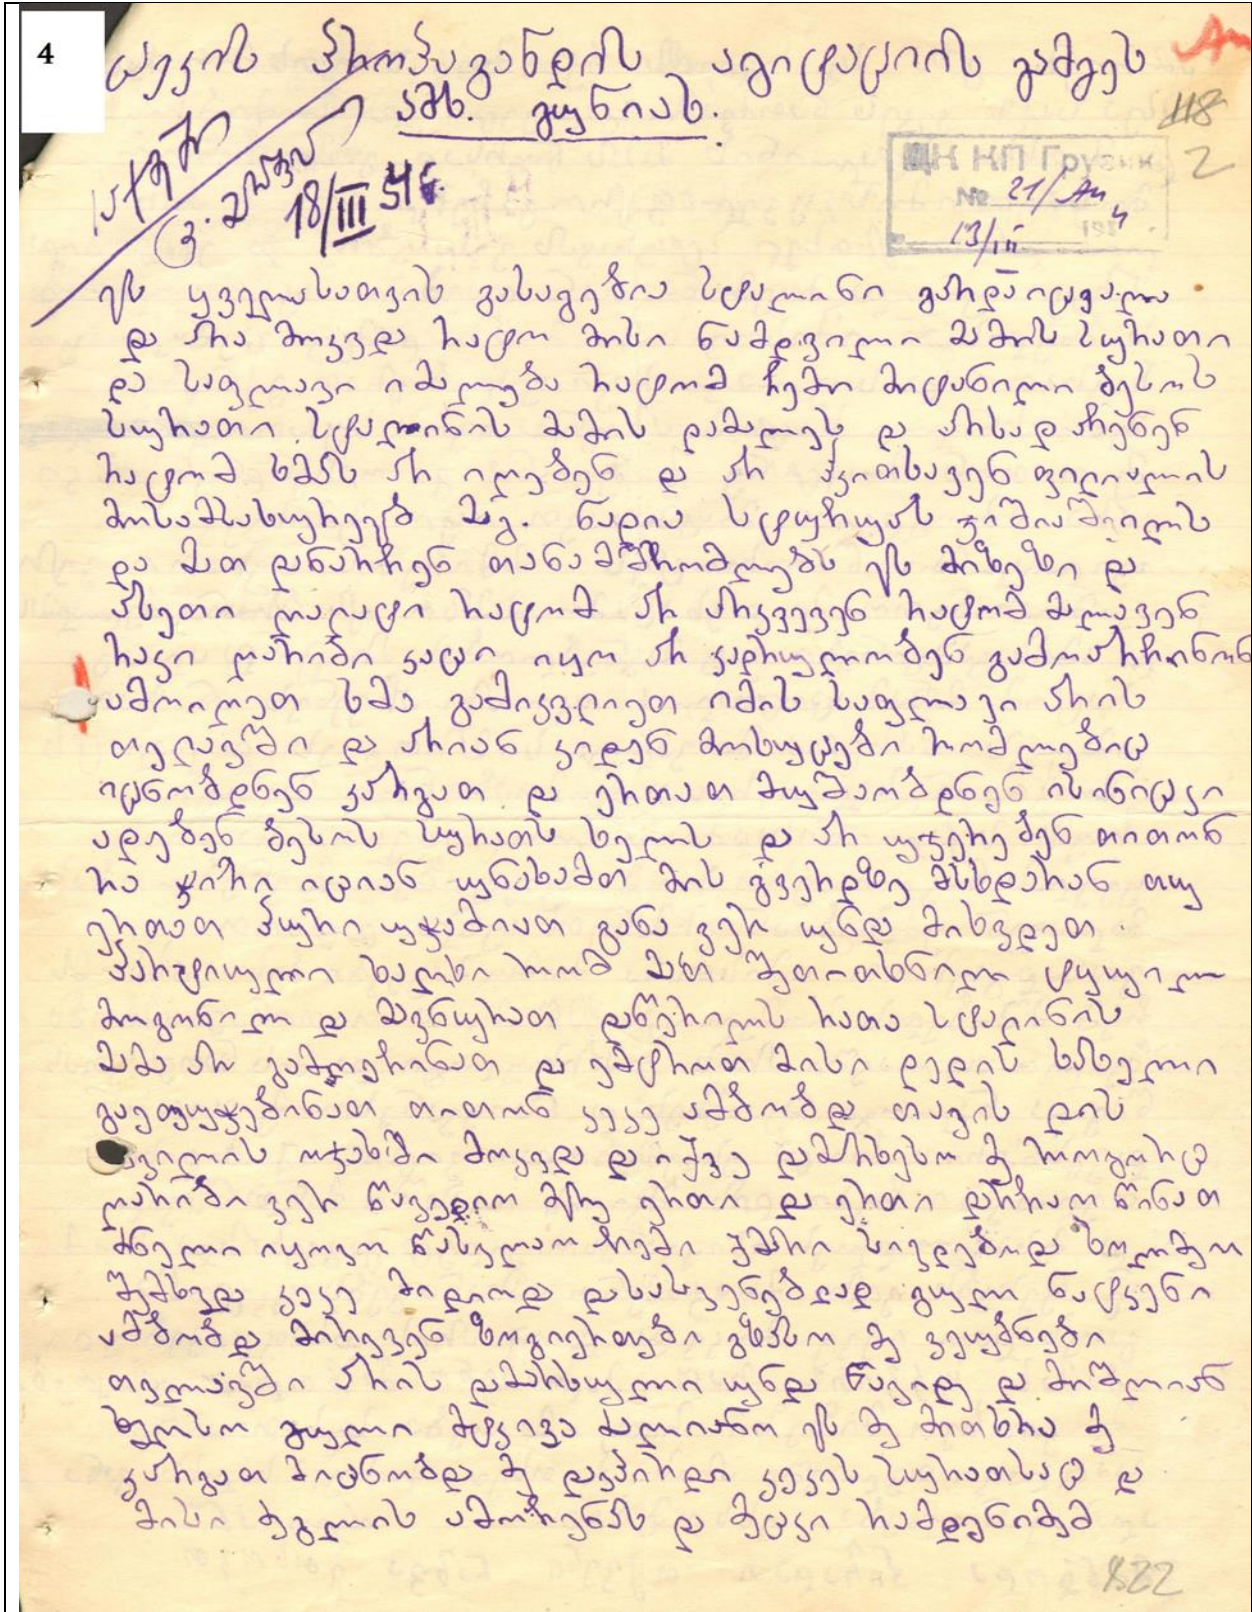 4
ცეკას პროპაგანდის აგიტაციის გამგეს
ამხ. გუნიას.
118
2
ЦК КП Грузии
№ 21/Ап
13/III 4
18/III 54 г.
ეს ყველასათვის გასაგებია სტალინი გარდაიცვალა
და არა მოკვდა რატო მისი ნამდვილი მამის სურათი
და საფლავი იმალება რატომ ჩემი მიტანილი ბესოს
სურათი სტალინის მამის დამალეს და არსად აჩენენ
რატომ ხმას არ იღებენ და არ კითხავენ ფილიალის
მოსამსახურეებ მაგ. ნადია სტურუას ჯიმიაშვილს
და მათ დანარჩენ თანამშრომლებს ეს მიზეზი და
ასეთი ღალატი რატომ არ არკვევენ რატომ მალავენ
რაკი ღარიბი კაცი იყო არ კადრულობენ გამოარჩინონ
ამოიღეთ ხმა გამიკვლიეთ იმის საფლავი არის
თელავში და არიან კიდენ მოხუცები რომლებიც
იცნობდნენ კარგათ და ერთათ მუშაობდნენ ისინიცკი
ადებენ ბესოს სურათს ხელს და არ უჯერებენ თითონ
რა ჯირი იციან უნახამთ მის გვერდზე მსხდარან თუ
ერთათ პური უჯამიათ განა ვერ უნდა მიხვდეთ.
პარტიული ხალხი რომ მათ შეთითხნილი ტყუილი
მოგონილი და მავნურათ დაწერილს რათა სტალინის
მამა არ გამოერინათ და ემტროთ მისი დედის სახელი
გაეფუჭებინათ თითონ კეკე ამბობდა თავის დის
შვილის ოჯახში მოკვდა და იქვე დამარხესო მე როგორც
ღარიბი ვერ წავედიო მარუ ერთი და ერთი დარჩაო წინათ
ძნელი იყოვო წასვლაო ჩემი ქმარი სიკვდებოდა ხოლმეო
შემხვდა კეკე მიდიოდა დასასვენებლად გული ნატკენი
ამბობდა მირევენ ზოგიერთები გზასო მე ვეუბნები
თელავში არის დამარხული უნდა წავიდე და მიშლიან
ხელსო გული მტკივა ძალიანო ეს მე მითხრა მე
კარგათ მიცნობდა მე დავპირდი კეკეს სურათსაც და
მისი ძეგლის ამოჩენას და მეცკი რამდენიმემ
822